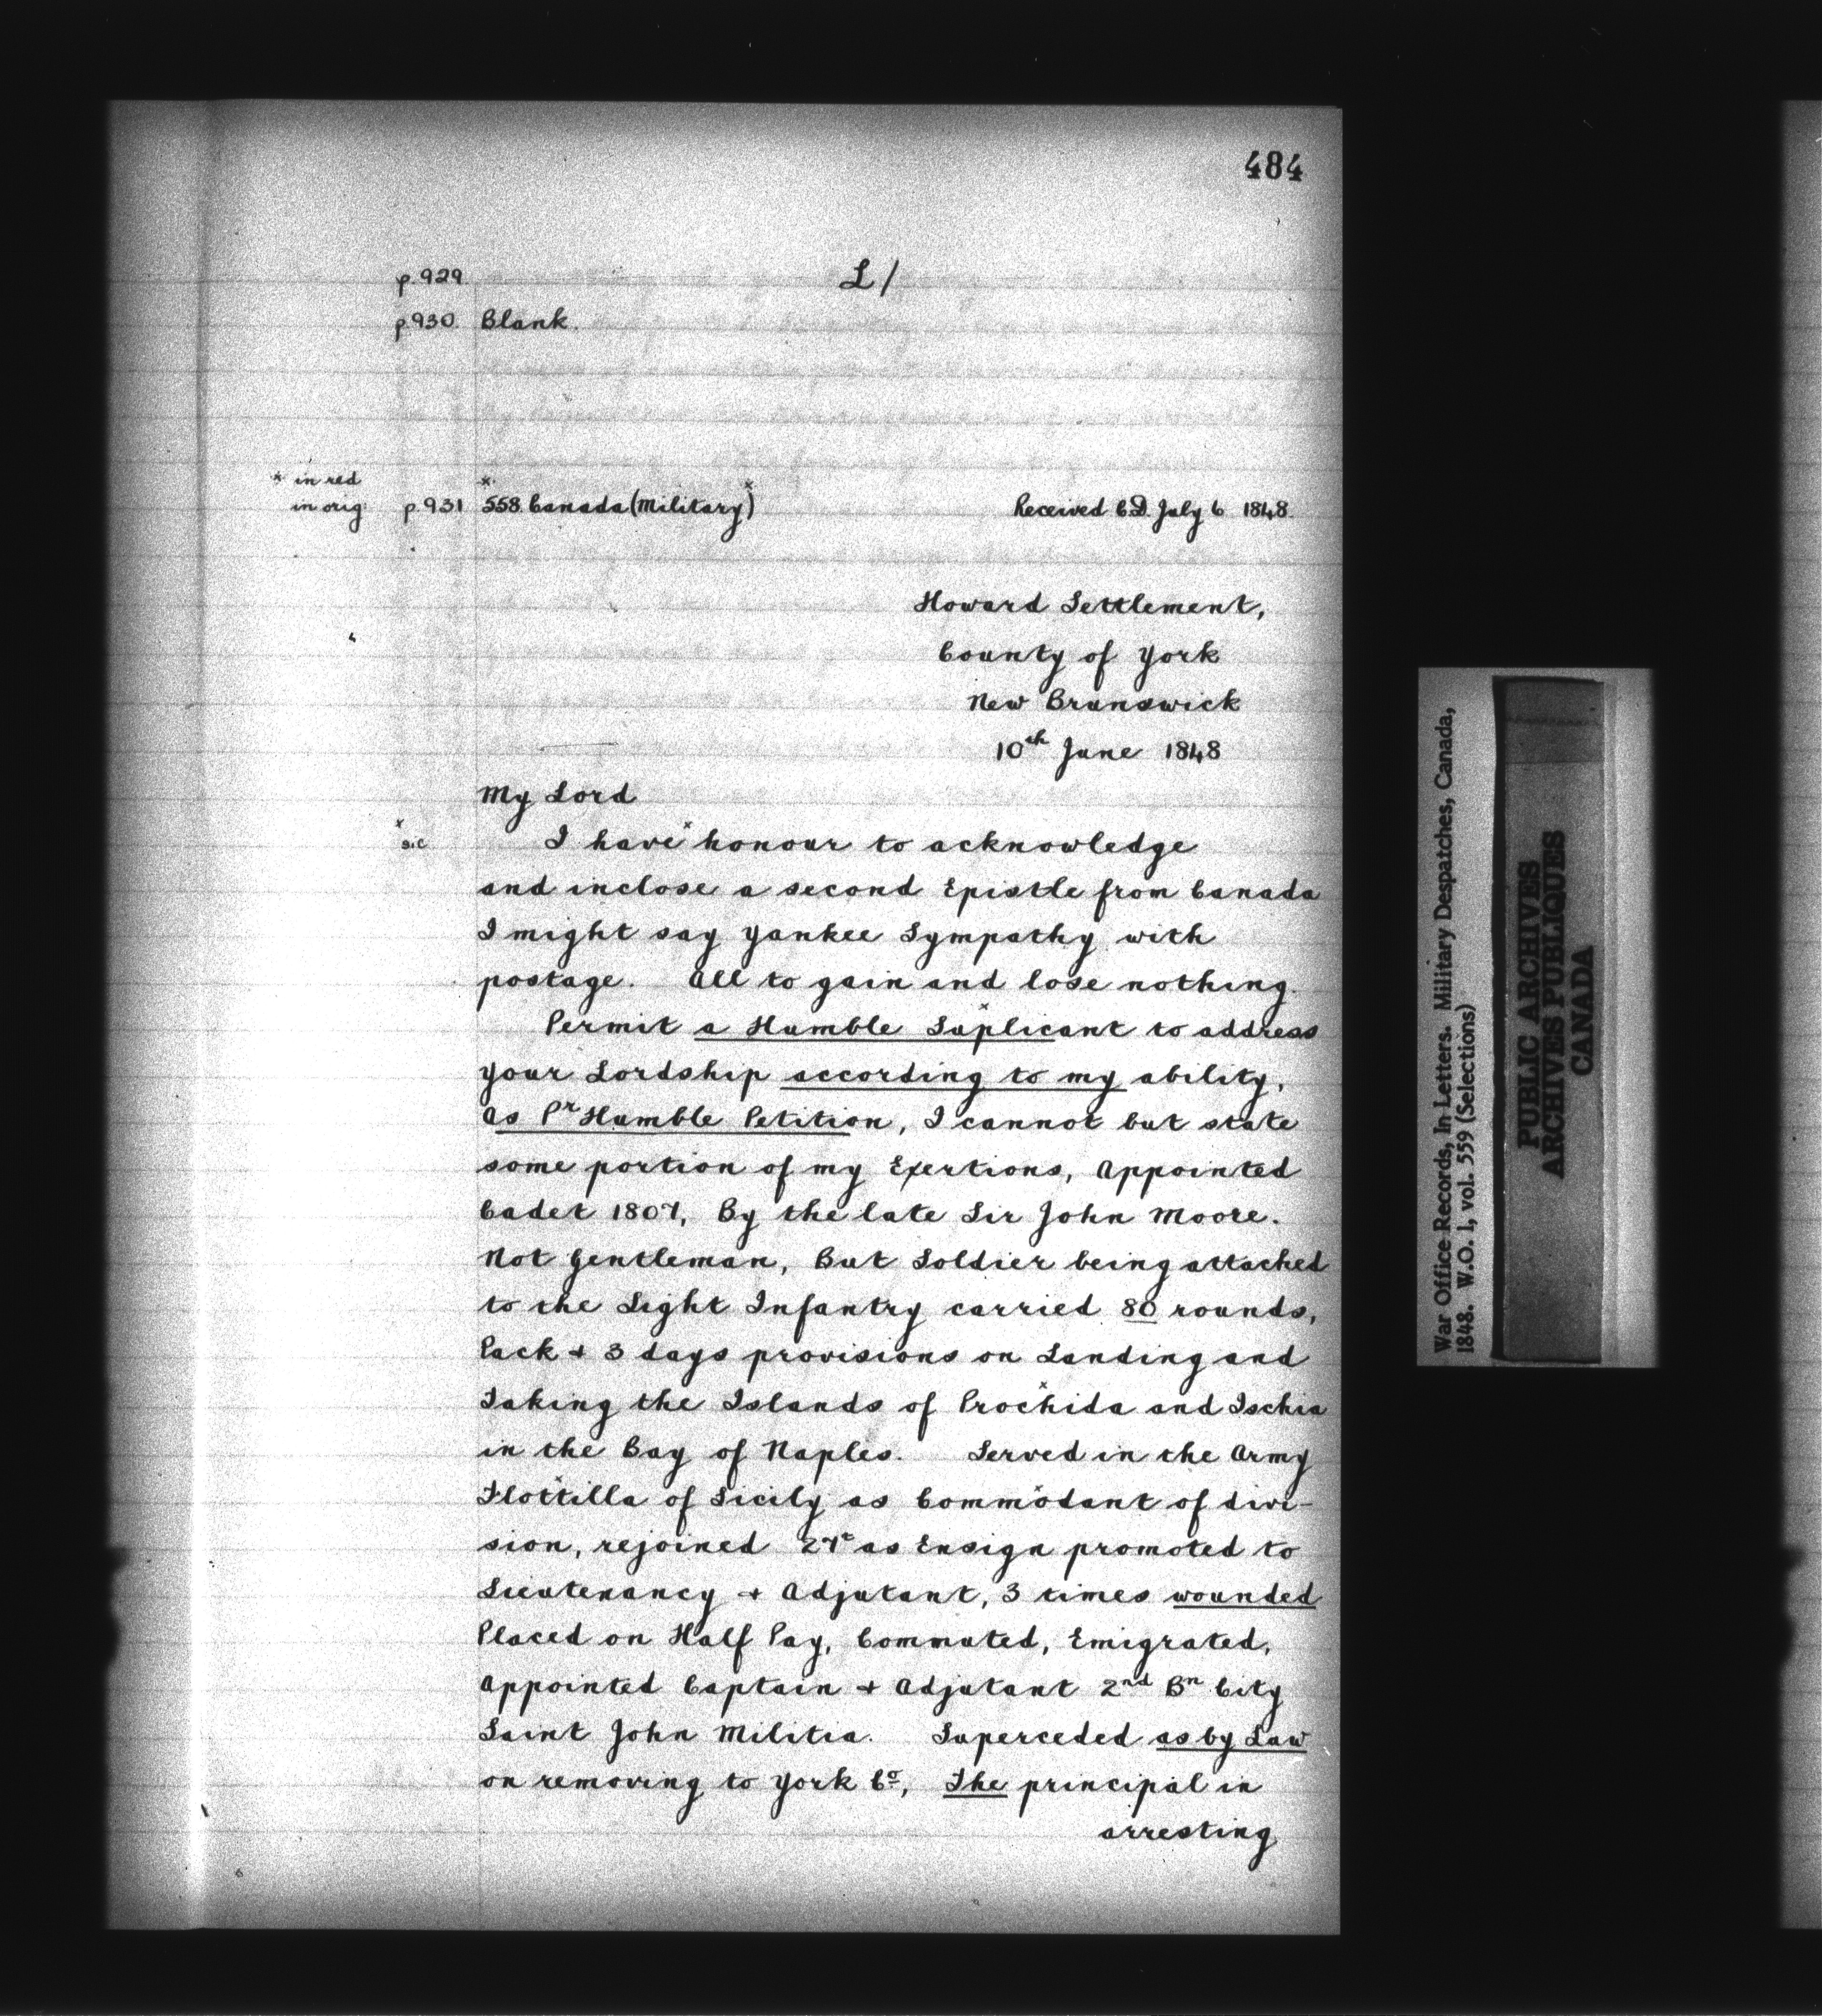 484
p.929. L/
p.930. Blank.
* in red
in orig. p.931 *558. Canada (Military*) Received C.D. July 6 1848.
Howard Settlement,
County of York
New Brunswick
10th June 1848
My Lord
x sic I have x honour to acknowledge
and inclose a second Epistle from Canada
I might say Yankee Sympathy with
postage. All to gain and lose nothing.
Permit a Humble Suplicant to address
your Lordship according to my ability,
as Pr Humble Petition, I cannot but state
some portion of my Exertions, Appointed
Cadet 1807, By the late Sir John Moore.
Not Gentleman, But Soldier being attached
to the Light Infantry carried 80 rounds,
Pack + 3 days provisions on Landing and
Taking the Islands of Prochida and Ischia
in the Bay of Naples. Served in the Army
Flottilla of Sicily as Commodant of divi-
sion, rejoined 27t as Ensign promoted to
Lieutenancy + Adjutant, 3 times wounded
Placed on Half Pay, Commuted, Emigrated,
Appointed Captain + Adjutant 2nd Bn City
Saint John Militia. Superceded as by Law
on removing to York Co, The principal in
arresting
War Office Records, In Letters. Military Despatches, Canada,
1848. W.O. 1, vol. 559 (Selections)
PUBLIC ARCHIVES
ARCHIVES PUBLIQUES
CANADA